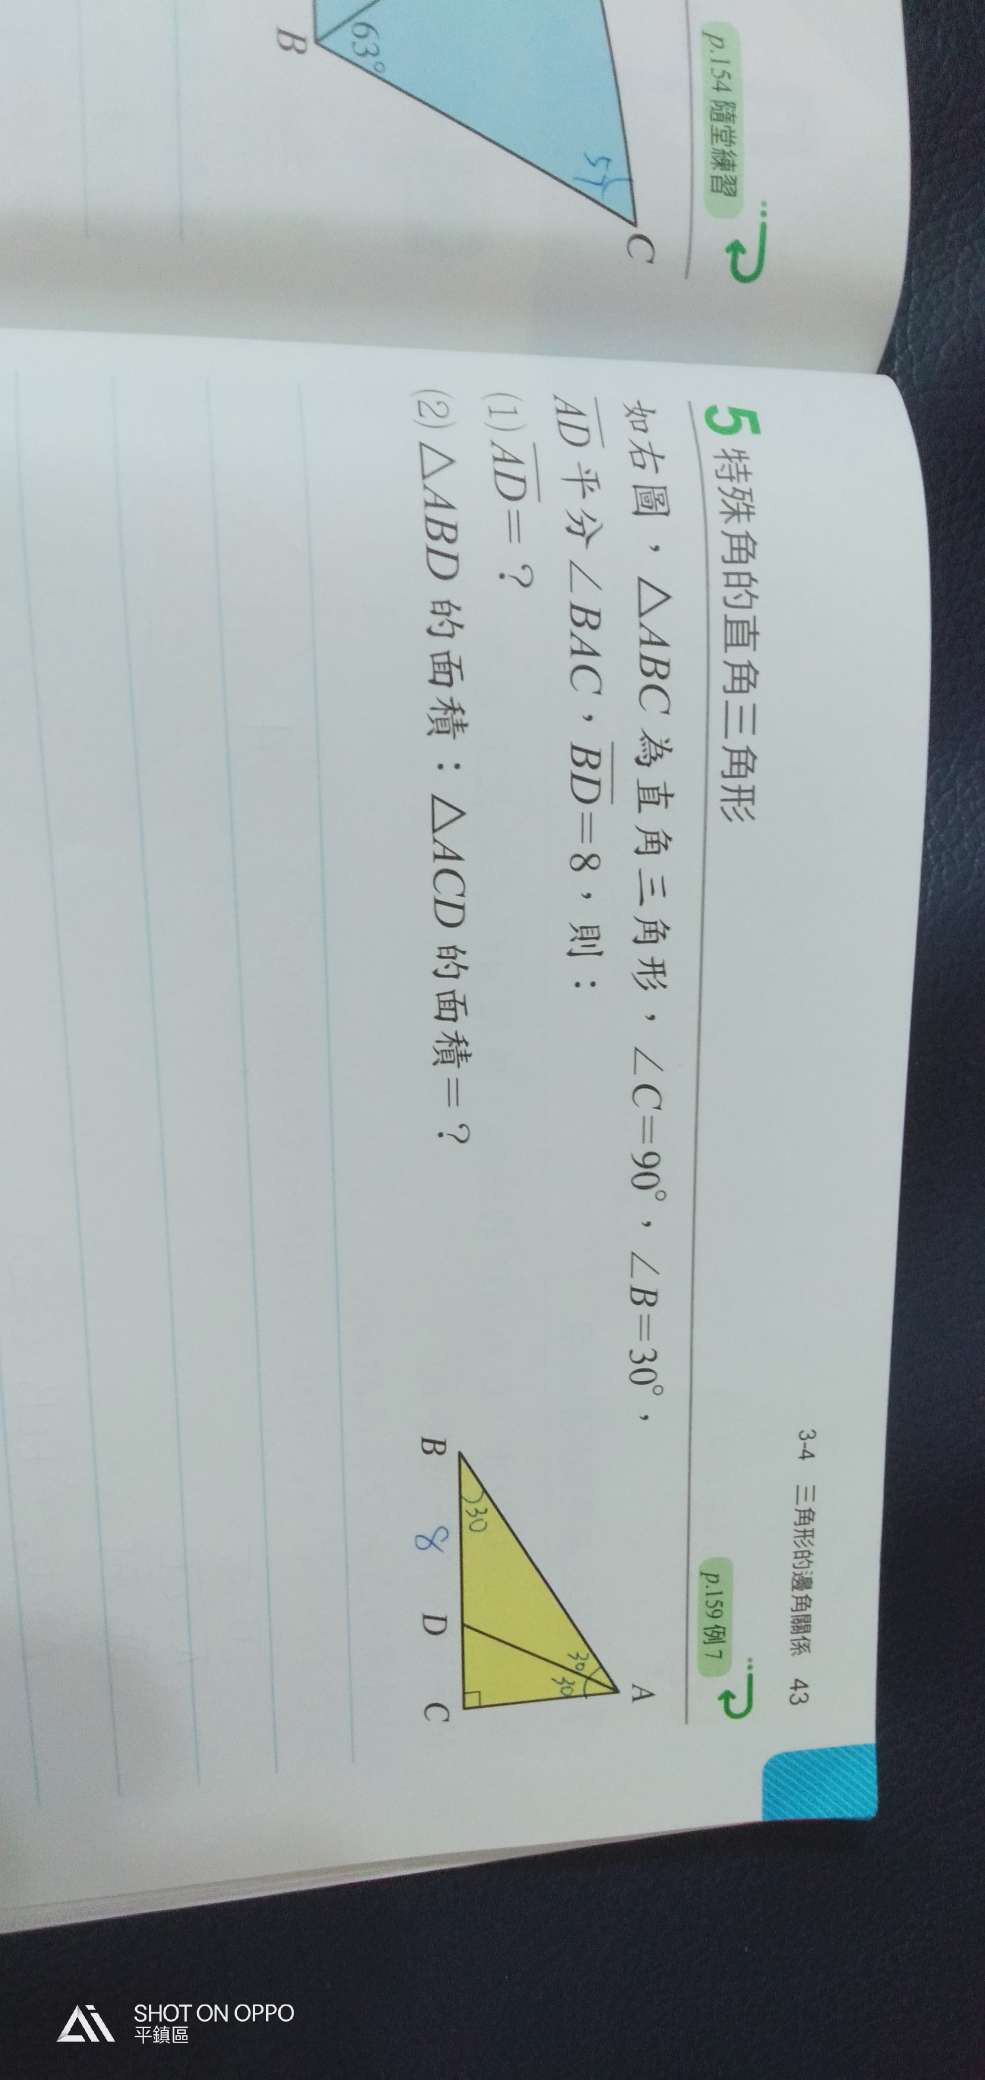 p.154 隨堂練習
63°
B
C
3-4 三角形的邊角關係 43
5 特殊角的直角三角形
p.159 例 7
如右圖，△ABC 為直角三角形，∠C＝90°，∠B＝30°，
AD 平分∠BAC，BD＝8，則：
(1) AD＝？
(2) △ABD 的面積：△ACD 的面積＝？
A
30
30
30
B
8
D
C
SHOT ON OPPO
平鎮區